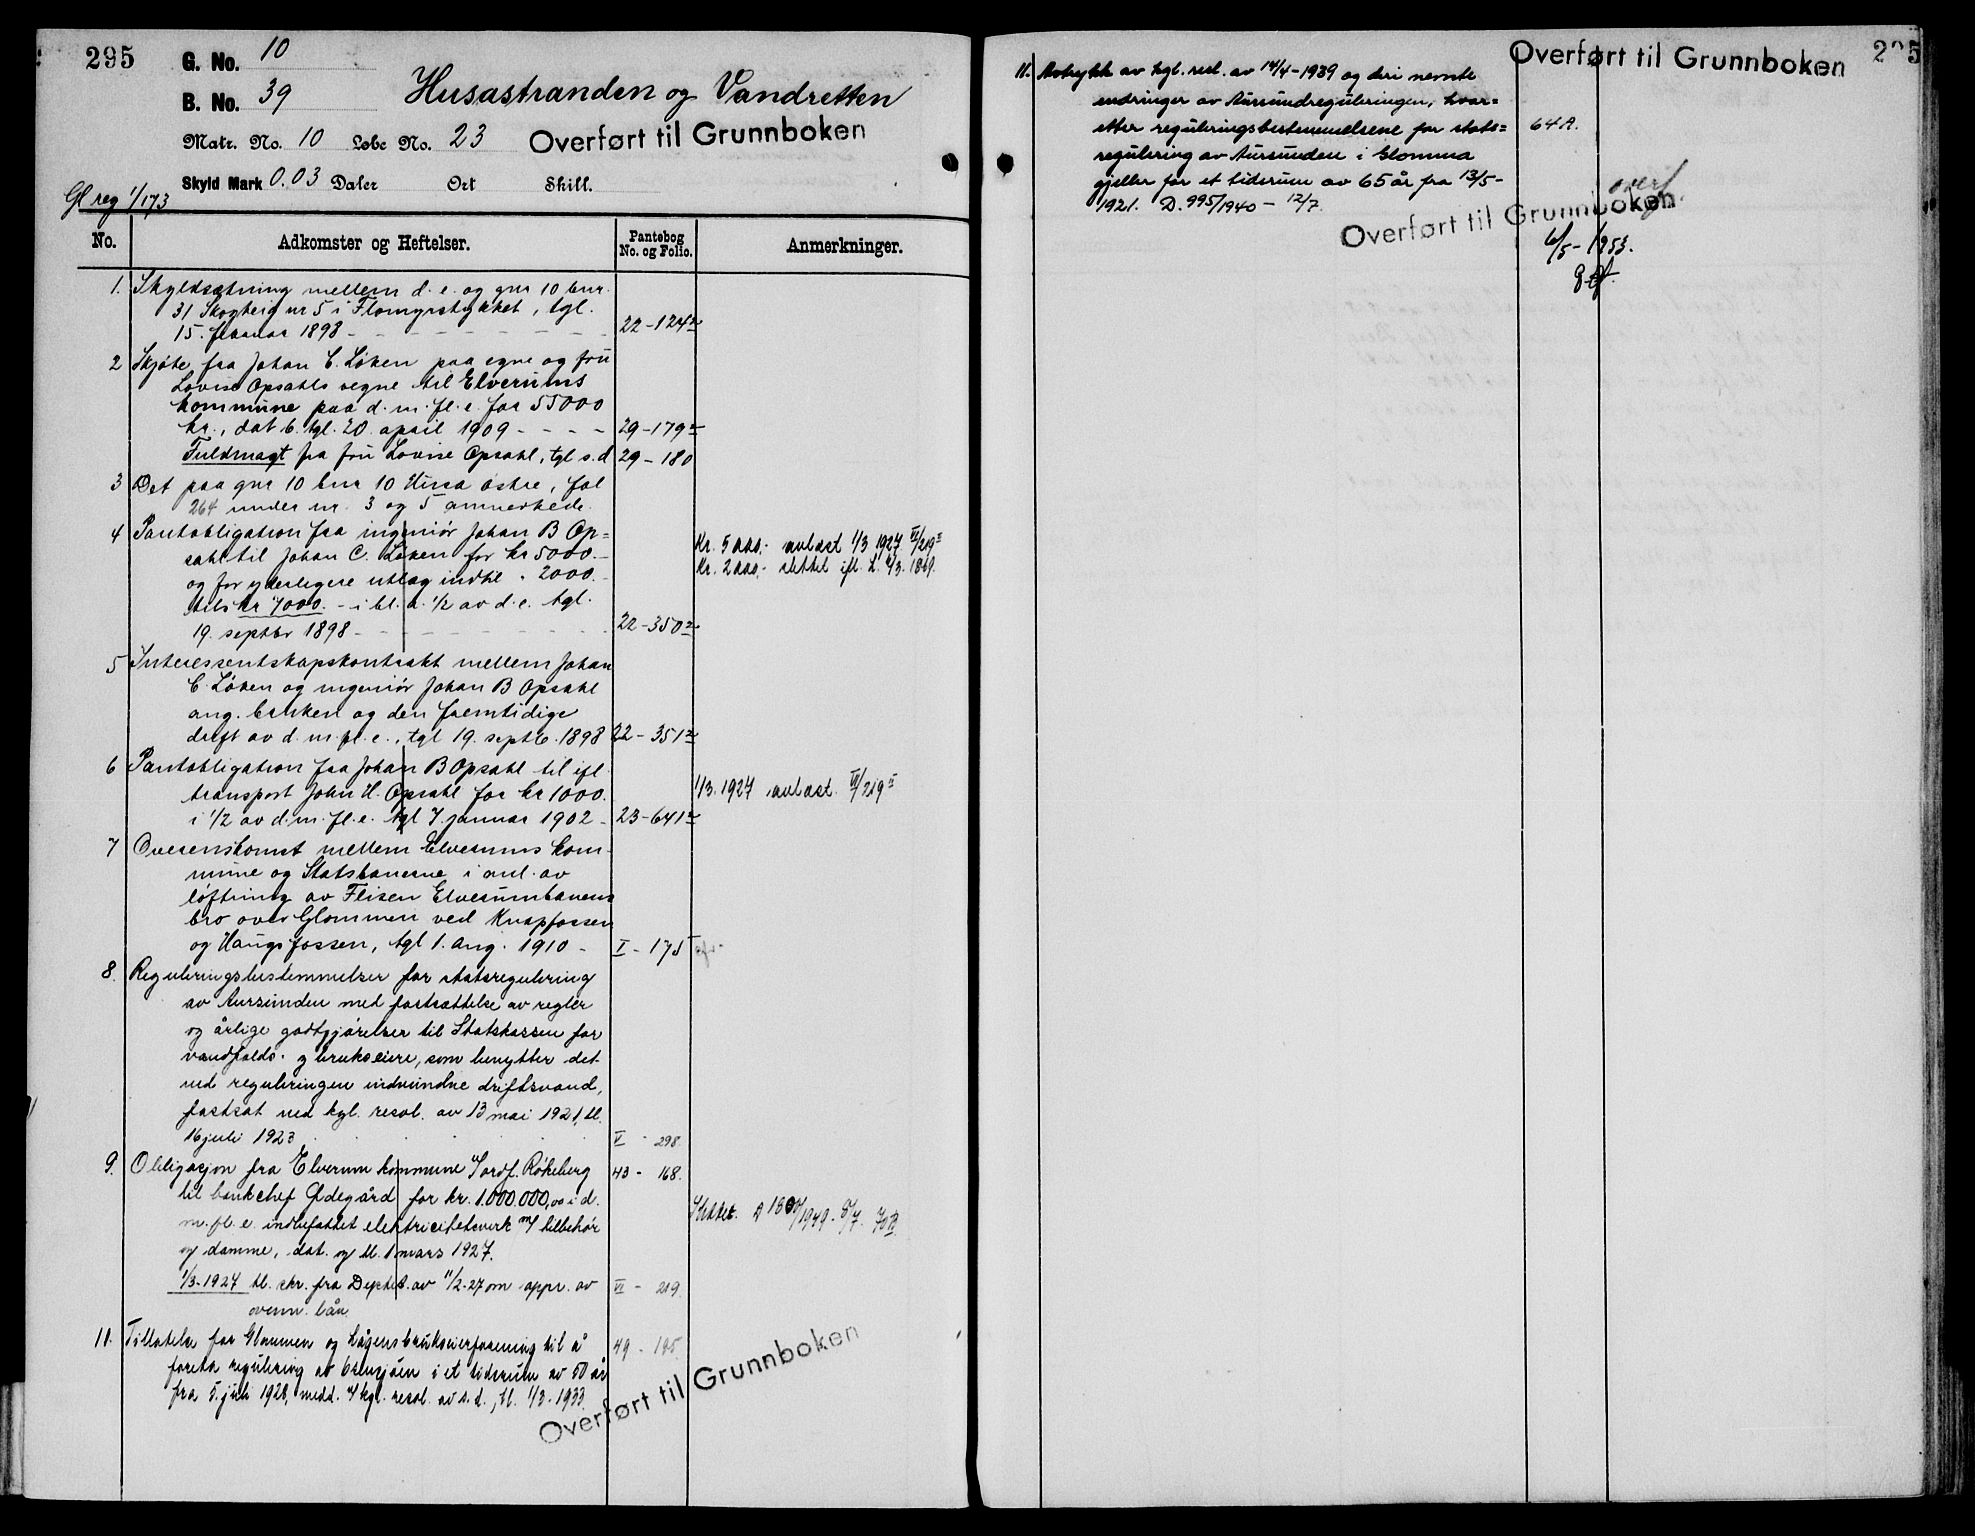 295
G. No. 10
B. No. 39
Husastranden og Vandretten
Matr. No. 10 Løbe No. 23
Overført til Grunnboken
Skyld Mark 0.03 Daler Ort Skill.
Gl reg 1/173
No. Adkomster og Heftelser. Pantebog No. og Folio. Anmerkninger.
1. Skyldsætning mellem d. e. og gnr 10 bnr.
31 Skogteig nr 5 i Flomyrstykket, tgl.
15. februar 1898 - 22-124
2 Skjøte fra Johan C. Løken paa egne og fru
Lovise Opsahls vegne til Elverums
kommune paa d. m. fl. e. for 55000
kr., dat 6. tgl. 20. april 1909 - 29-179
Fuldmagt fra fru Lovise Opsahl, tgl s. d 29-180
3 Det paa gnr 10 bnr 10 Hussa østre, fol
264 under nr. 3 og 5 anmerkede.
4 Pantobligation fra ingeniør Johan B Op=
sahl til Johan C. Løken for kr 5000.-
og for yderligere utlæg indtil " 2000.-
tils kr 7000.- i bl. a. 1/2 av d. e. tgl.
19. septbr 1898 - 22-350
Kr. 5000.- avlæst 1/3 1927 VI/219
Kr. 2000.- slettet ifl. L.
5 Interessentskapskontrakt mellem Johan
C. Løken og ingeniør Johan B Opsahl
ang. bruken og den fremtidige
drift av d. m. fl. e., tgl 19. septb. 1898 22-351
6 Pantobligation fra Johan B Opsahl til ifl
transport John H. Opsahl for kr 1000.
i 1/2 av d. m. fl. e. tgl 7. januar 1902 - 23-641
1/3.1927 avlæst. VI/219
7 Overenskomst mellem Elverums kom-
mune og Statsbanerne i anl. av
løftning av Flisen Elverumbanens
bro over Glommen ved Knapfossen
og Haugsfossen, tgl 1. aug. 1910 - I-175
8. Reguleringsbestemmelser for statsregulering
av Aursunden med fastsættelse av regler
og årlige godtgjørelser til Statskassen for
vandfalds- og brukseiere, som benytter det
ved reguleringen indvundne driftsvand,
fastsat ved kgl. resol. av 13 mai 1921, tl.
16 juli 1923 V - 298.
9. Obligasjon fra Elverum kommune v/ordf. Røkeberg 43 - 168.
til bankchef Ødegård for kr. 1.000.000,00 i d.
m. fl. e. indbefattet elektricitetsverk m/ tilbehør
og damme, dat. og tl. 1 mars 1927.
1/3-1927 tl. skr. fra Deptet. av 11/2-27 om appr. av VI - 219.
ovenn. lån
11. Tillatelse for Glommen og Lågens brukseierforening til å 49 - 195.
foreta regulering av i et tidsrum av 50 år
fra 5. juli 1928, medd. v/kgl. resol. av s. d., tl. 1/3-1933.
Overført til Grunnboken
Overført til Grunnboken
11. Avtrykk av kgl. resl. av 14/4-1939 og deri nevnte
endringer av Aursundreguleringen, hvor=
etter reguleringsbestemmelsene for stats= 64A.
regulering av Aursunden i Glomma
gjelder for et tidsrum av 65 år fra 13/5-
1921. D. 995/1940 - 12/7.
Overført til Grunnboken
overf
6/5-1953.